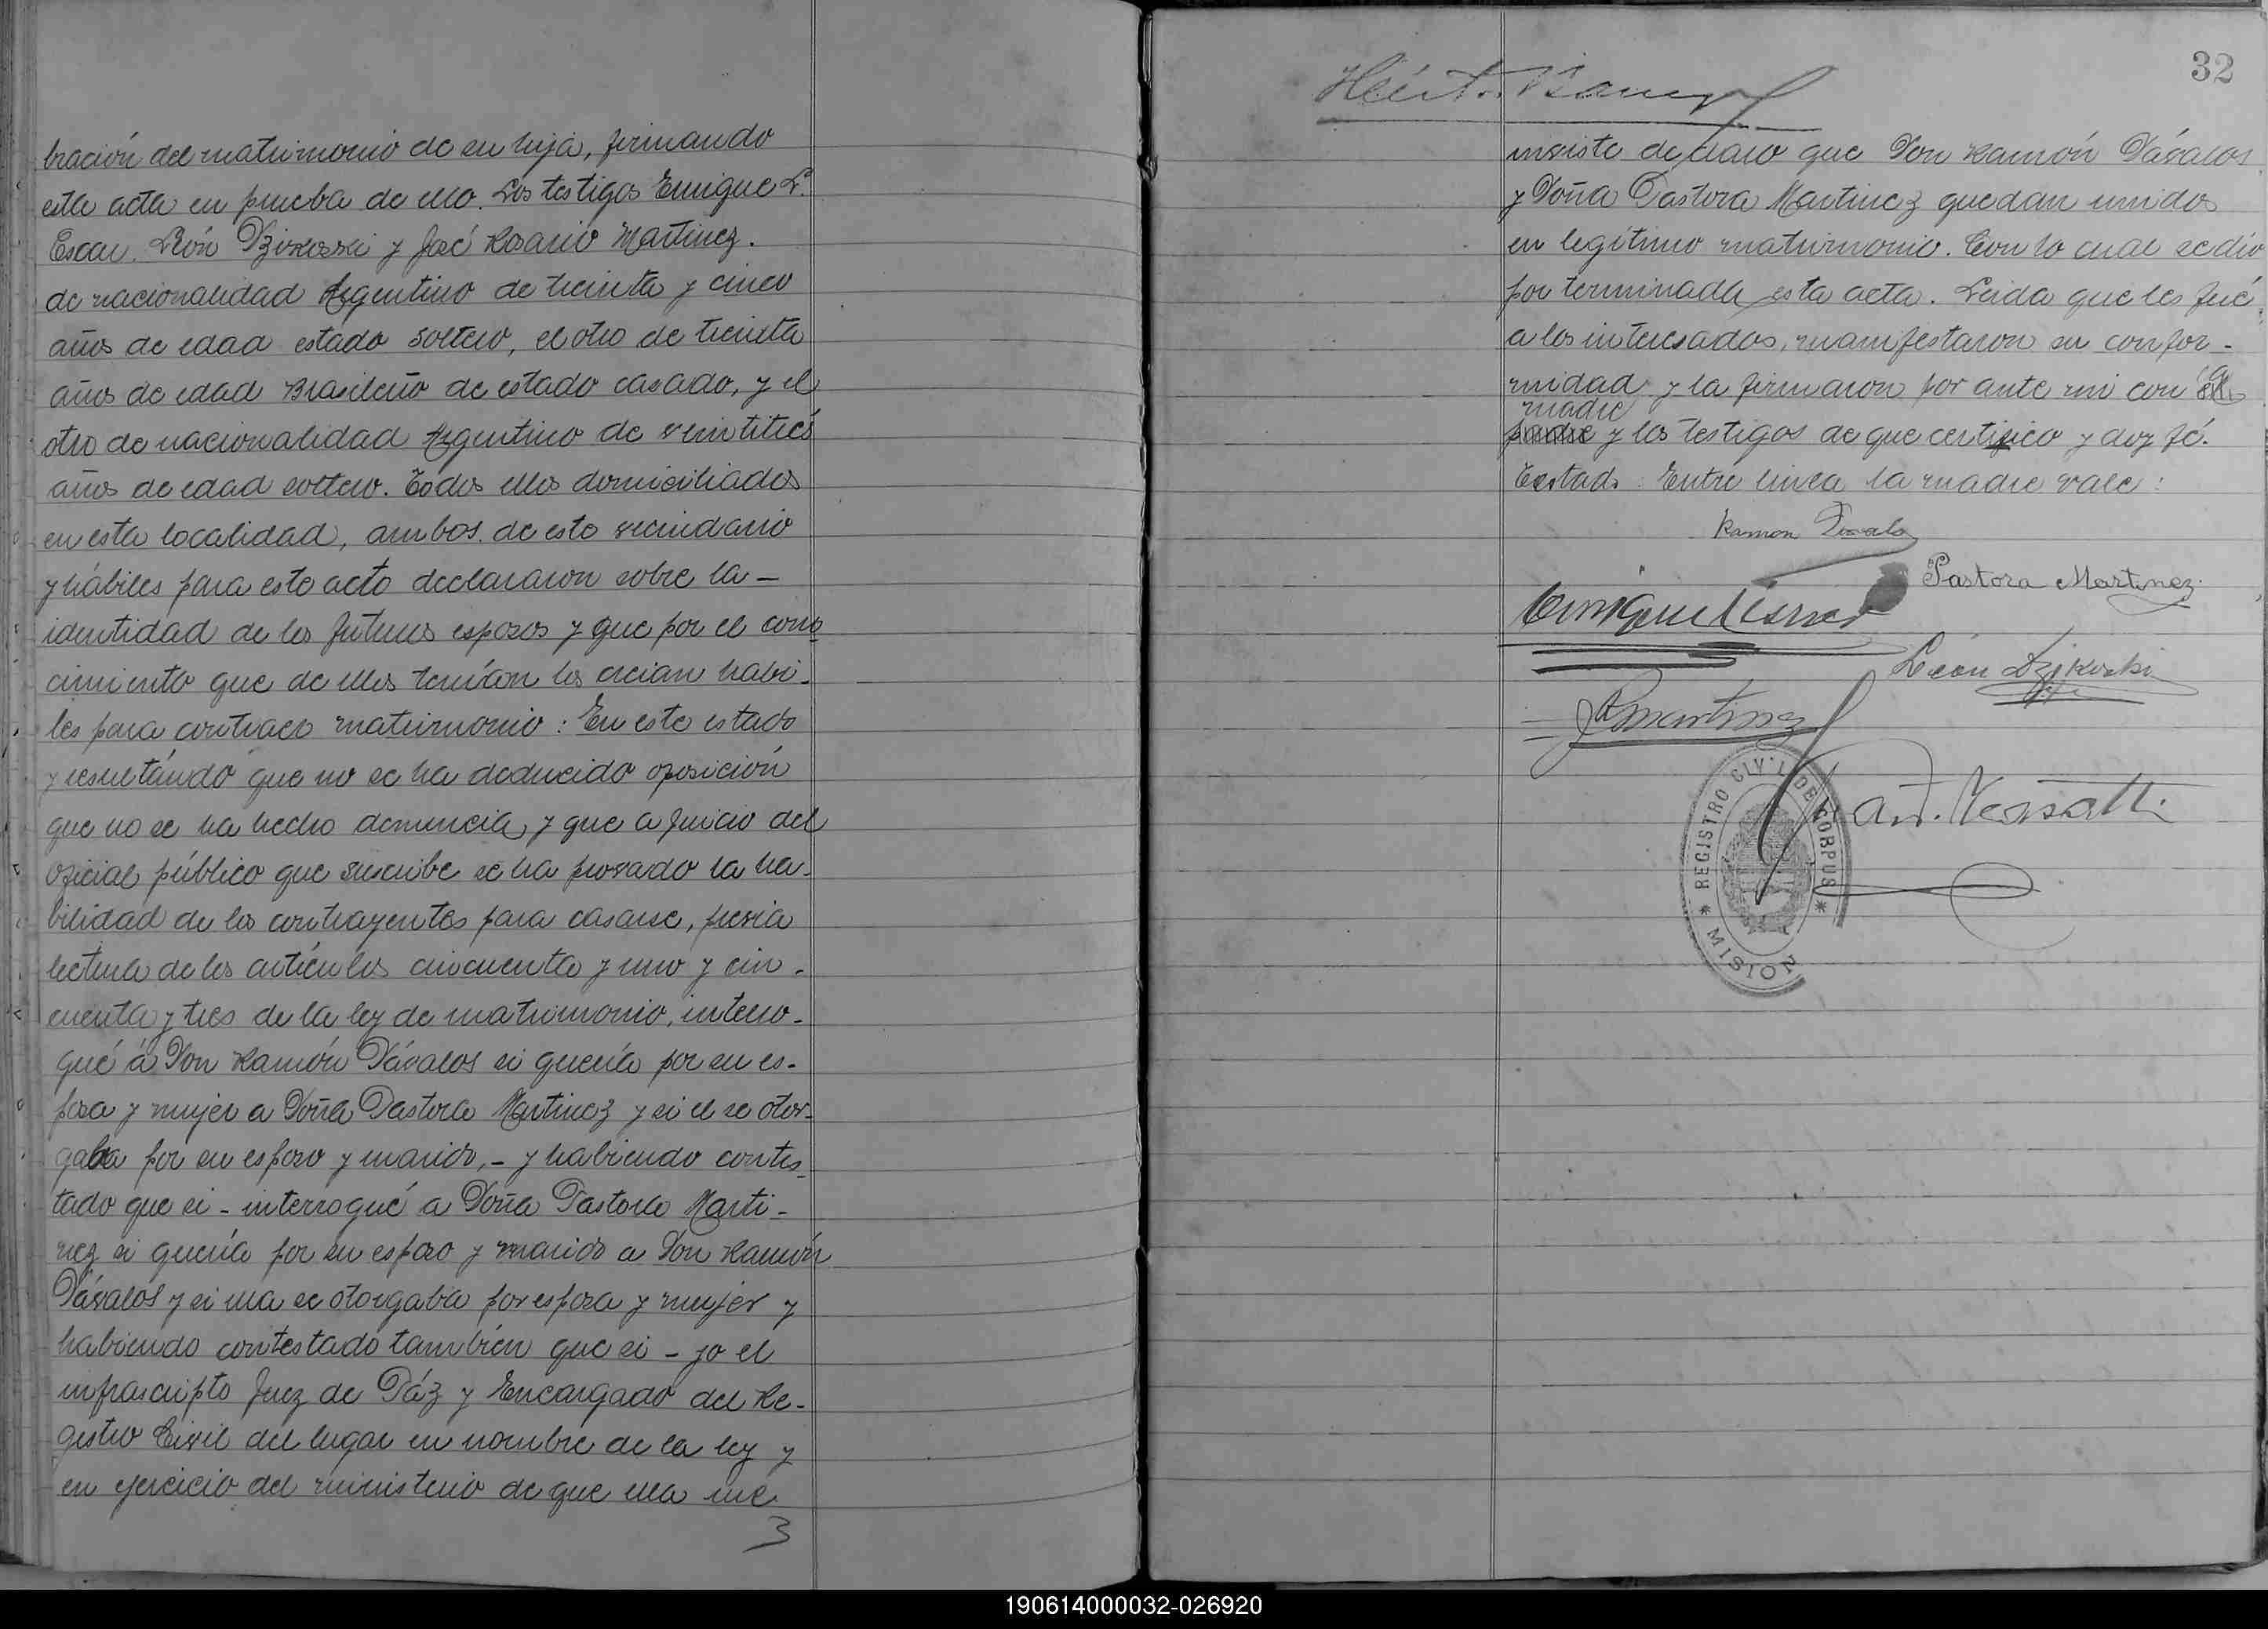 bración del matrimonio de su hija, firmando
esta acta en prueba de ello. Los testigos Enrique L.
Escar. León Dzikoski y José Rosario Martinez.
de nacionalidad Argentino de treinta y cinco
años de edad estado soltero, el otro de treinta
años de edad Brasileño de estado casado, y el
otro de nacionalidad Argentino de veintitrés
años de edad soltero. Todos ellos domiciliados
en esta localidad, ambos de este vecindario
y hábiles para este acto declararon sobre la -
identidad de los futuros esposos y que por el cono
cimiento que de ellos tenían los creian habi-
les para contraer matrimonio: En este estado
y resultándo que no se ha deducido oposición
que no se ha hecho denuncia, y que a juicio del
oficial público que suscribe se ha provado la ha-
bilidad de los contrayentes para casarse, previa
lectura de los artículos cincuenta y uno y cin-
cuenta y tres de la ley de matrimonio, interro-
gué á Don Ramón Dávalos si quería por su es-
posa y mujer a Doña Pastora Martinez y si el se otor-
gaba por su esposo y marido, - y habiendo contes
tado que si - interrogué a Doña Pastora Marti-
nez si quería por su esposo y marido a Don Ramón
Dávalos y si ella se otorgaba por esposa y mujer y
habiendo contestado también que si - yo el
infrascripto Juez de Páz y Encargado del Re-
gistro Civil del lugar en nombre de la ley y
en ejercicio del ministerio de que ella me
3
32
inviste declaro que Don Ramón Dávalos
y Doña Pastora Martinez quedan unidos
en legítimo matrimonio. Con lo cual se dio
por terminada esta acta. Leida que les fué
a los interesados, manifestaron su confor-
midad y la firmaron por ante mi con la
madre
padre y los testigos de que certifico y doy fé.
Testad: Entre linea la madre vale:
Ramon Davalo
Pastora Martinez
Enrique L Escar
León Dzikoski
J R Martinez
REGISTRO CIVIL DE CORPUS * MISION *